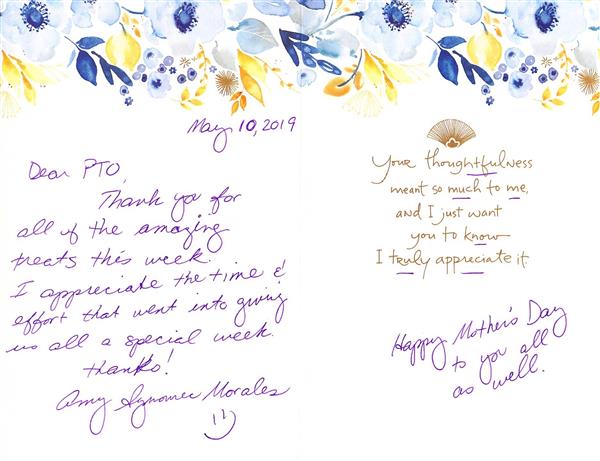 May 10, 2019
Dear PTO,
Thank you for
all of the amazing
treats this week.
I appreciate the time &
effort that went into giving
us all a special week.
thanks!
Amy Morales
Your thoughtfulness
meant so much to me,
and I just want
you to know
I truly appreciate it.
Happy Mother's Day
to you all
as well.